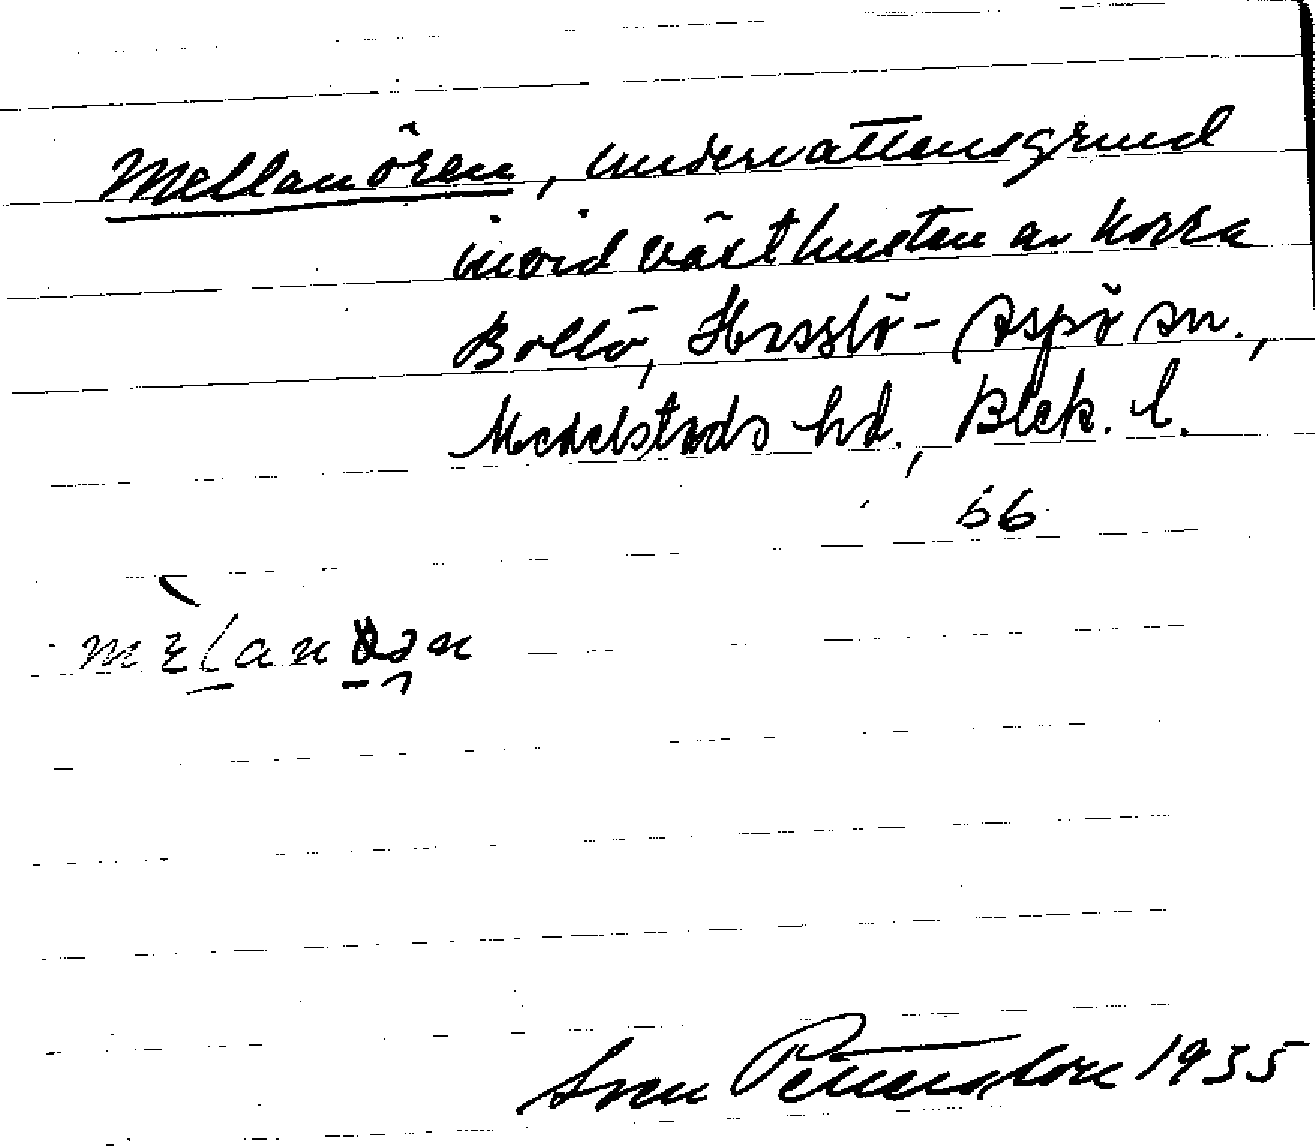 Mellanören, undervattensgrund
invid västkusten av Norra
Bollö, Hasslö-Aspö sn.,
Medelstads hd., Blek. l.
66
Sven Petterson 1935